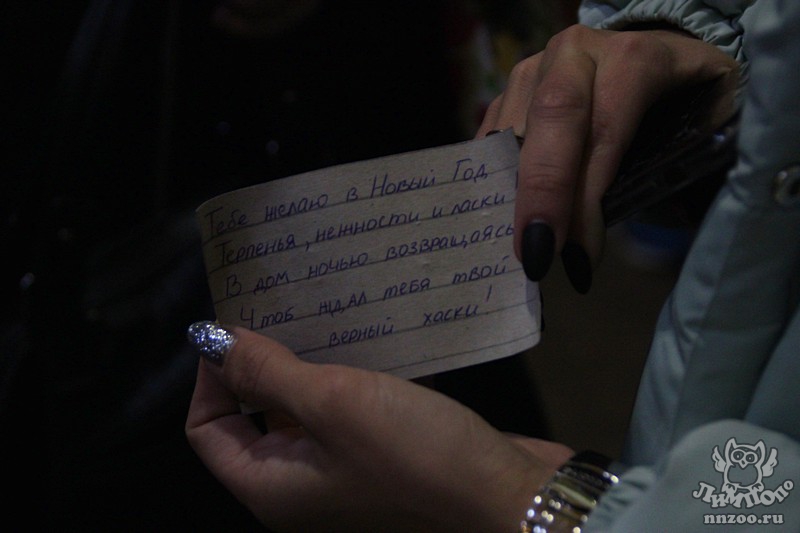 Тебе желаю в Новый Год
Терпенья, нежности и ласки!
В дом ночью возвращаясь
Чтоб ждал тебя твой
верный хаски!
Лимпопо
nnzoo.ru